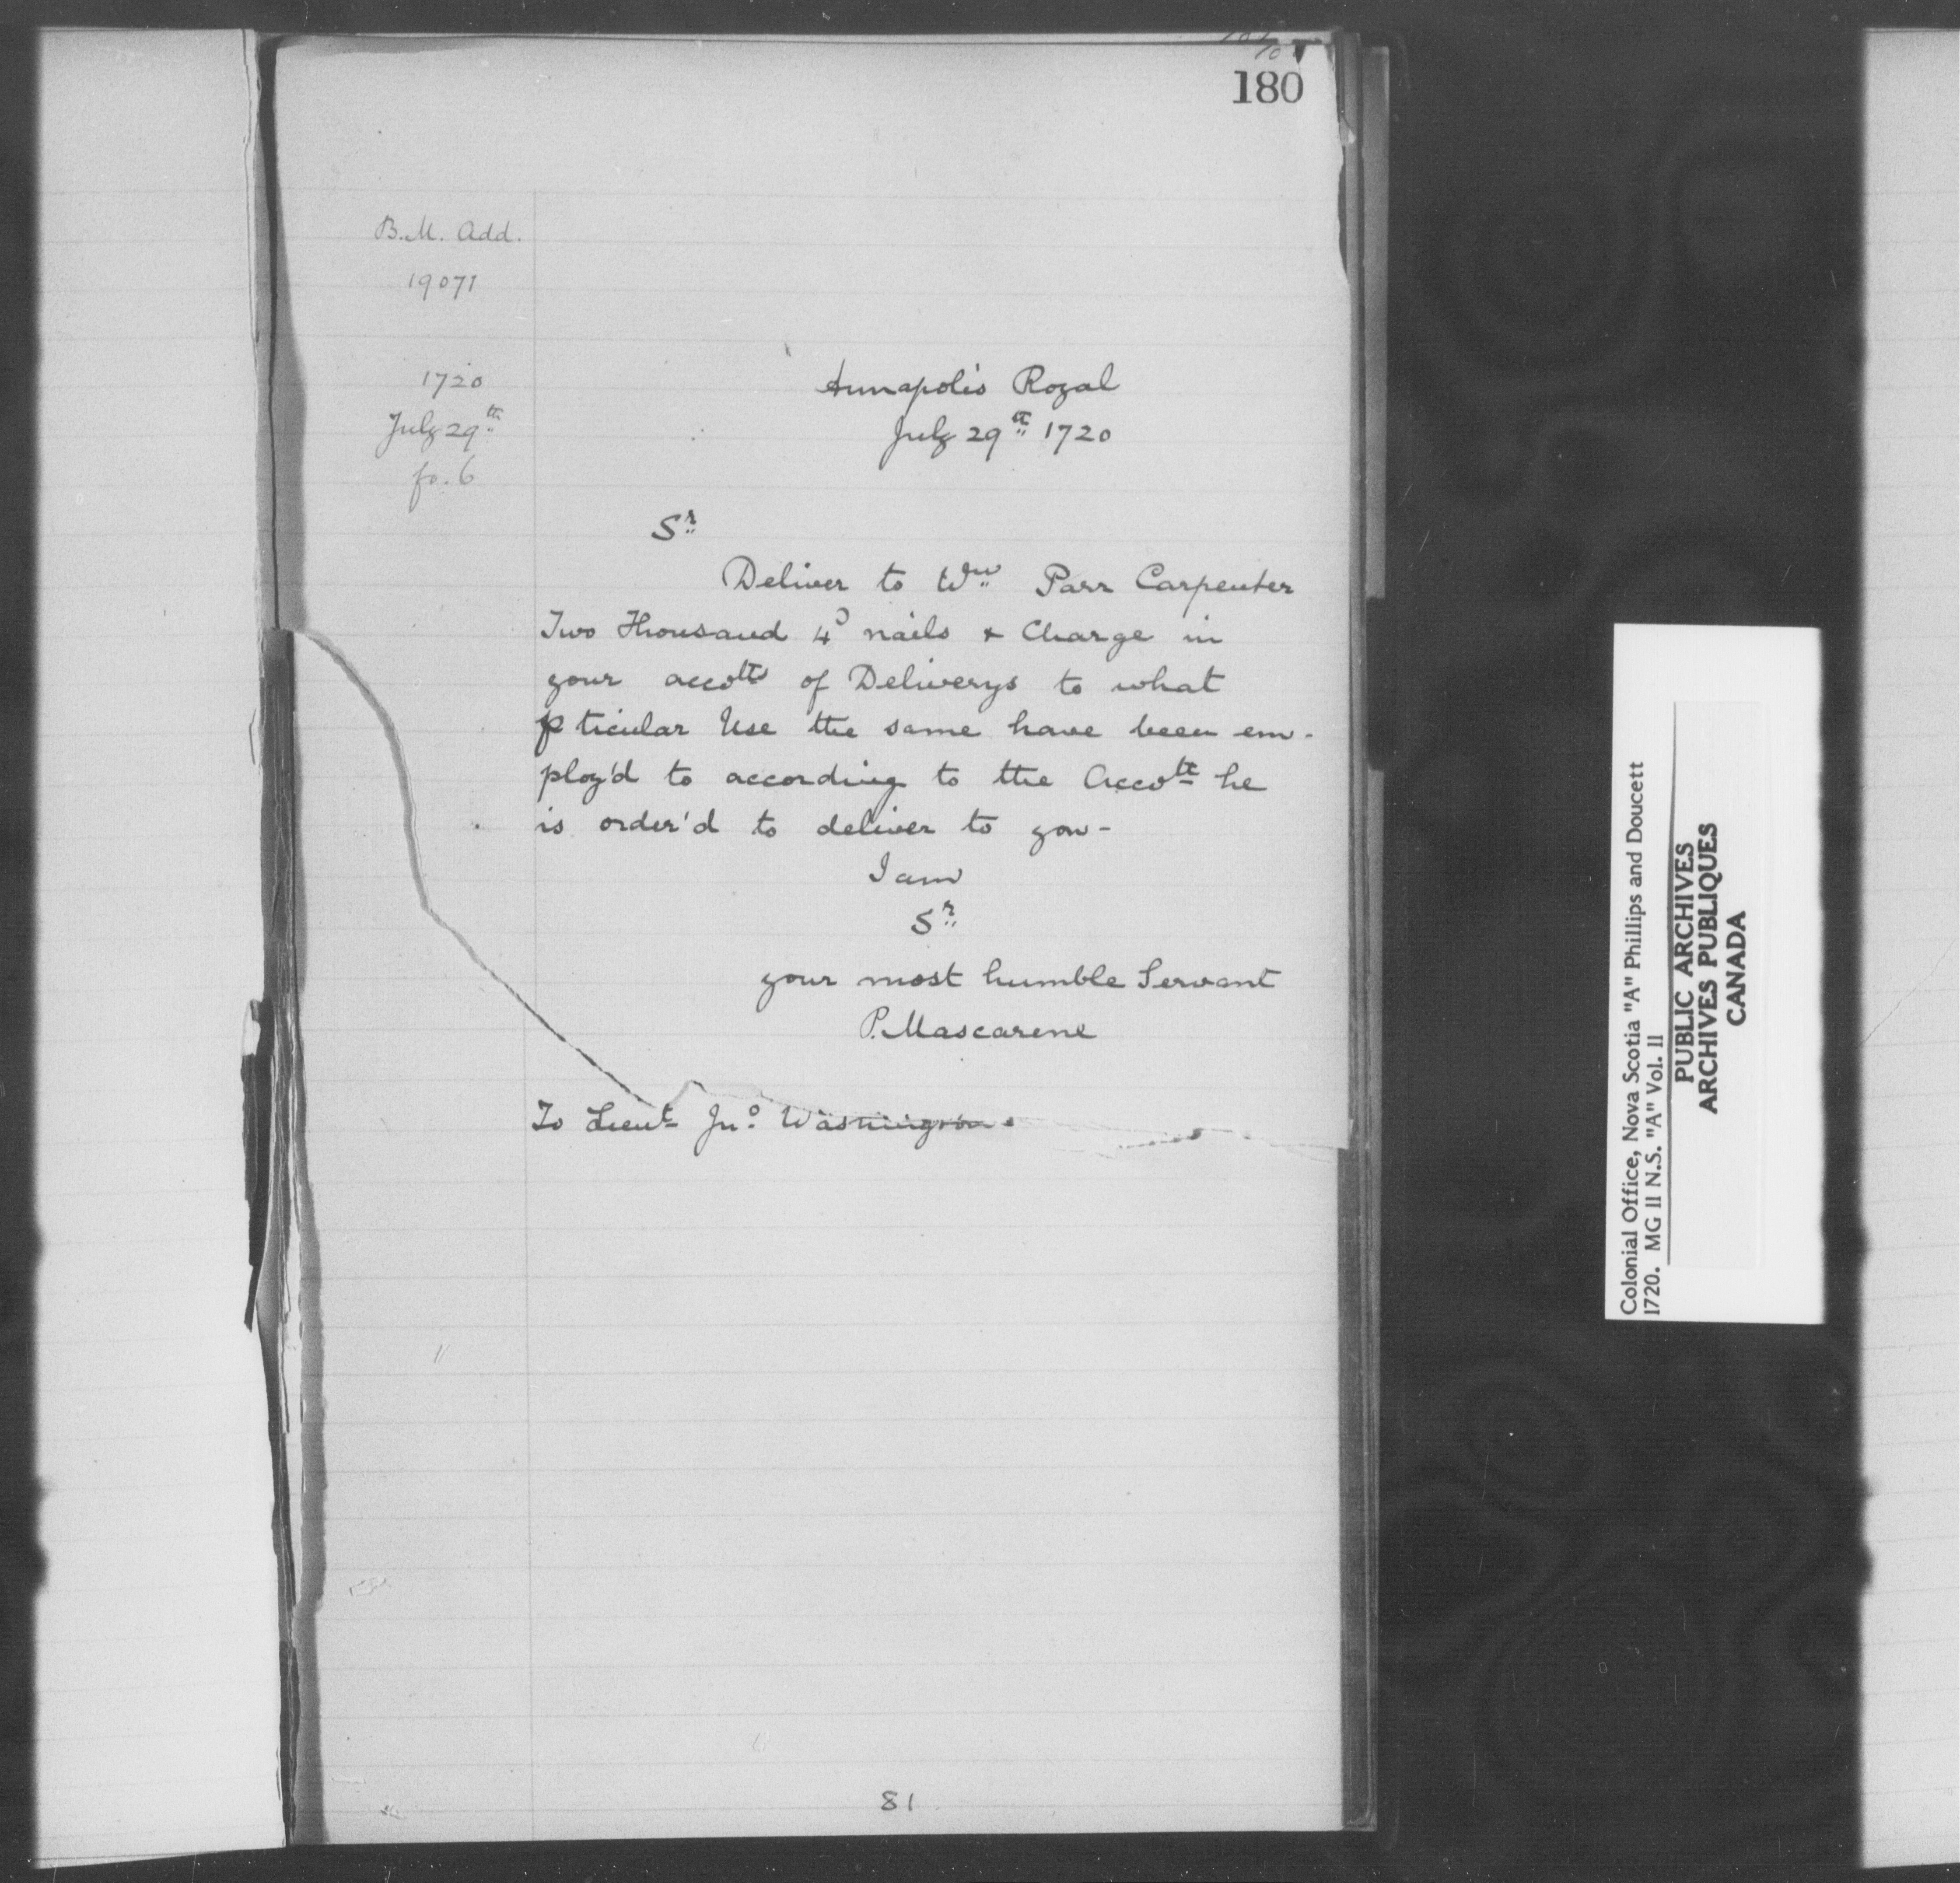 180
B.M. Add.
19071
1720
July 29th
fo. 6
Annapolis Royal
July 29th 1720
Sr
Deliver to Wm Parr Carpenter
Two Thousand 4D nails & Charge in
your accotts of Deliverys to what
pticular Use the same have been em-
ploy'd to according to the Accott he
is order'd to deliver to you-
I am
Sr
your most humble Servant
P. Mascarene
To Lieut Jno Washington.
81
Colonial Office, Nova Scotia "A" Phillips and Doucett
1720. MG 11 N.S. "A" Vol. 11
PUBLIC ARCHIVES
ARCHIVES PUBLIQUES
CANADA